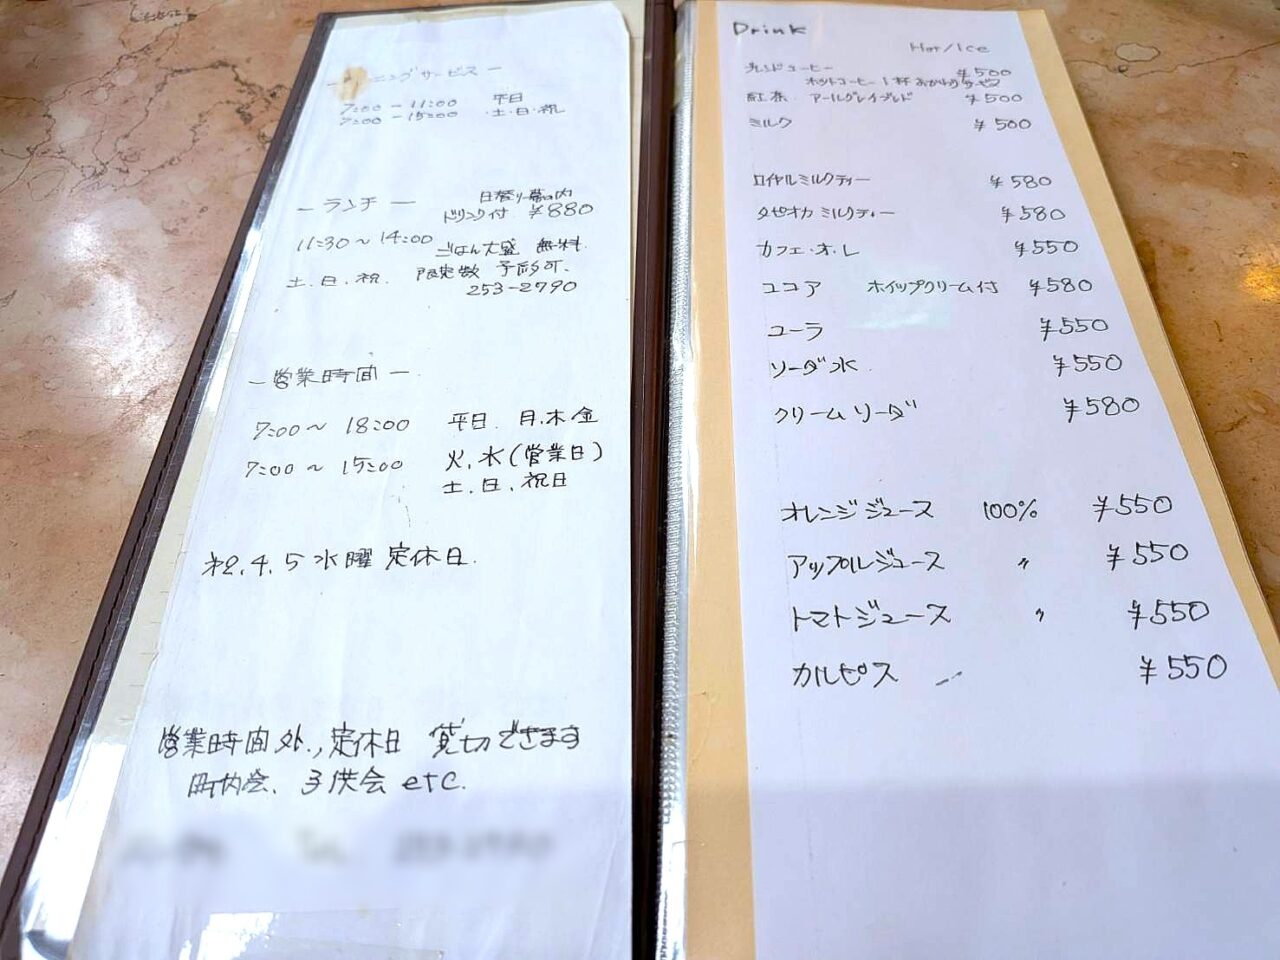 ーニングサービス ー
7:00 - 11:00 平日
7:00 - 15:00 土・日・祝
ー ランチ ー
日替り幕の内
ドリンク付 ¥880
11:30〜14:00
ごはん大盛 無料
土.日.祝. 限定数 予約可.
253-2790
ー営業時間ー
7:00〜 18:00 平日 月.木.金
7:00〜 15:00 火.水(営業日)
土.日.祝日
2.4.5 水曜 定休日.
営業時間外.,定休日 貸切できます
町内会. 子供会 etc.
Drink
Hot/Ice
ブレンドコーヒー ¥500
ホットコーヒー1杯おかわりサービス
紅茶 アールグレイブレンド ¥500
ミルク ¥500
ロイヤルミルクティー ¥580
タピオカ ミルクティー ¥580
カフェ・オ・レ ¥550
ココア ホイップクリーム付 ¥580
コーラ ¥550
ソーダ水 ¥550
クリームソーダ ¥580
オレンジジュース 100% ¥550
アップルジュース 〃 ¥550
トマトジュース 〃 ¥550
カルピス ¥550